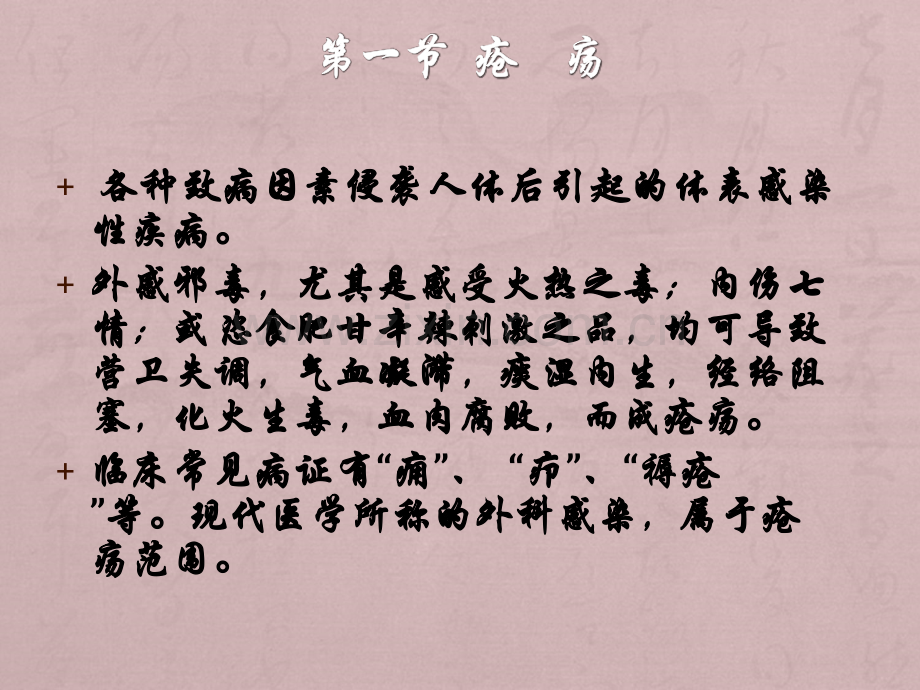 第一节 疮 疡
+ 各种致病因素侵袭人体后引起的体表感染
性疾病。
+ 外感邪毒，尤其是感受火热之毒；内伤七
情；或恣食肥甘辛辣刺激之品，均可导致
营卫失调，气血凝滞，痰湿内生，经络阻
塞，化火生毒，血肉腐败，而成疮疡。
+ 临床常见病证有“痈”、“疖”、“褥疮
”等。现代医学所称的外科感染，属于疮
疡范围。